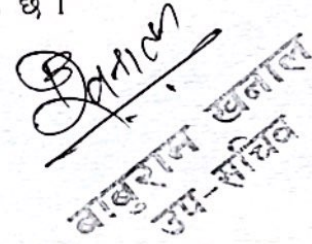 छ।
बाबुराम खनाल
उप-सचिव